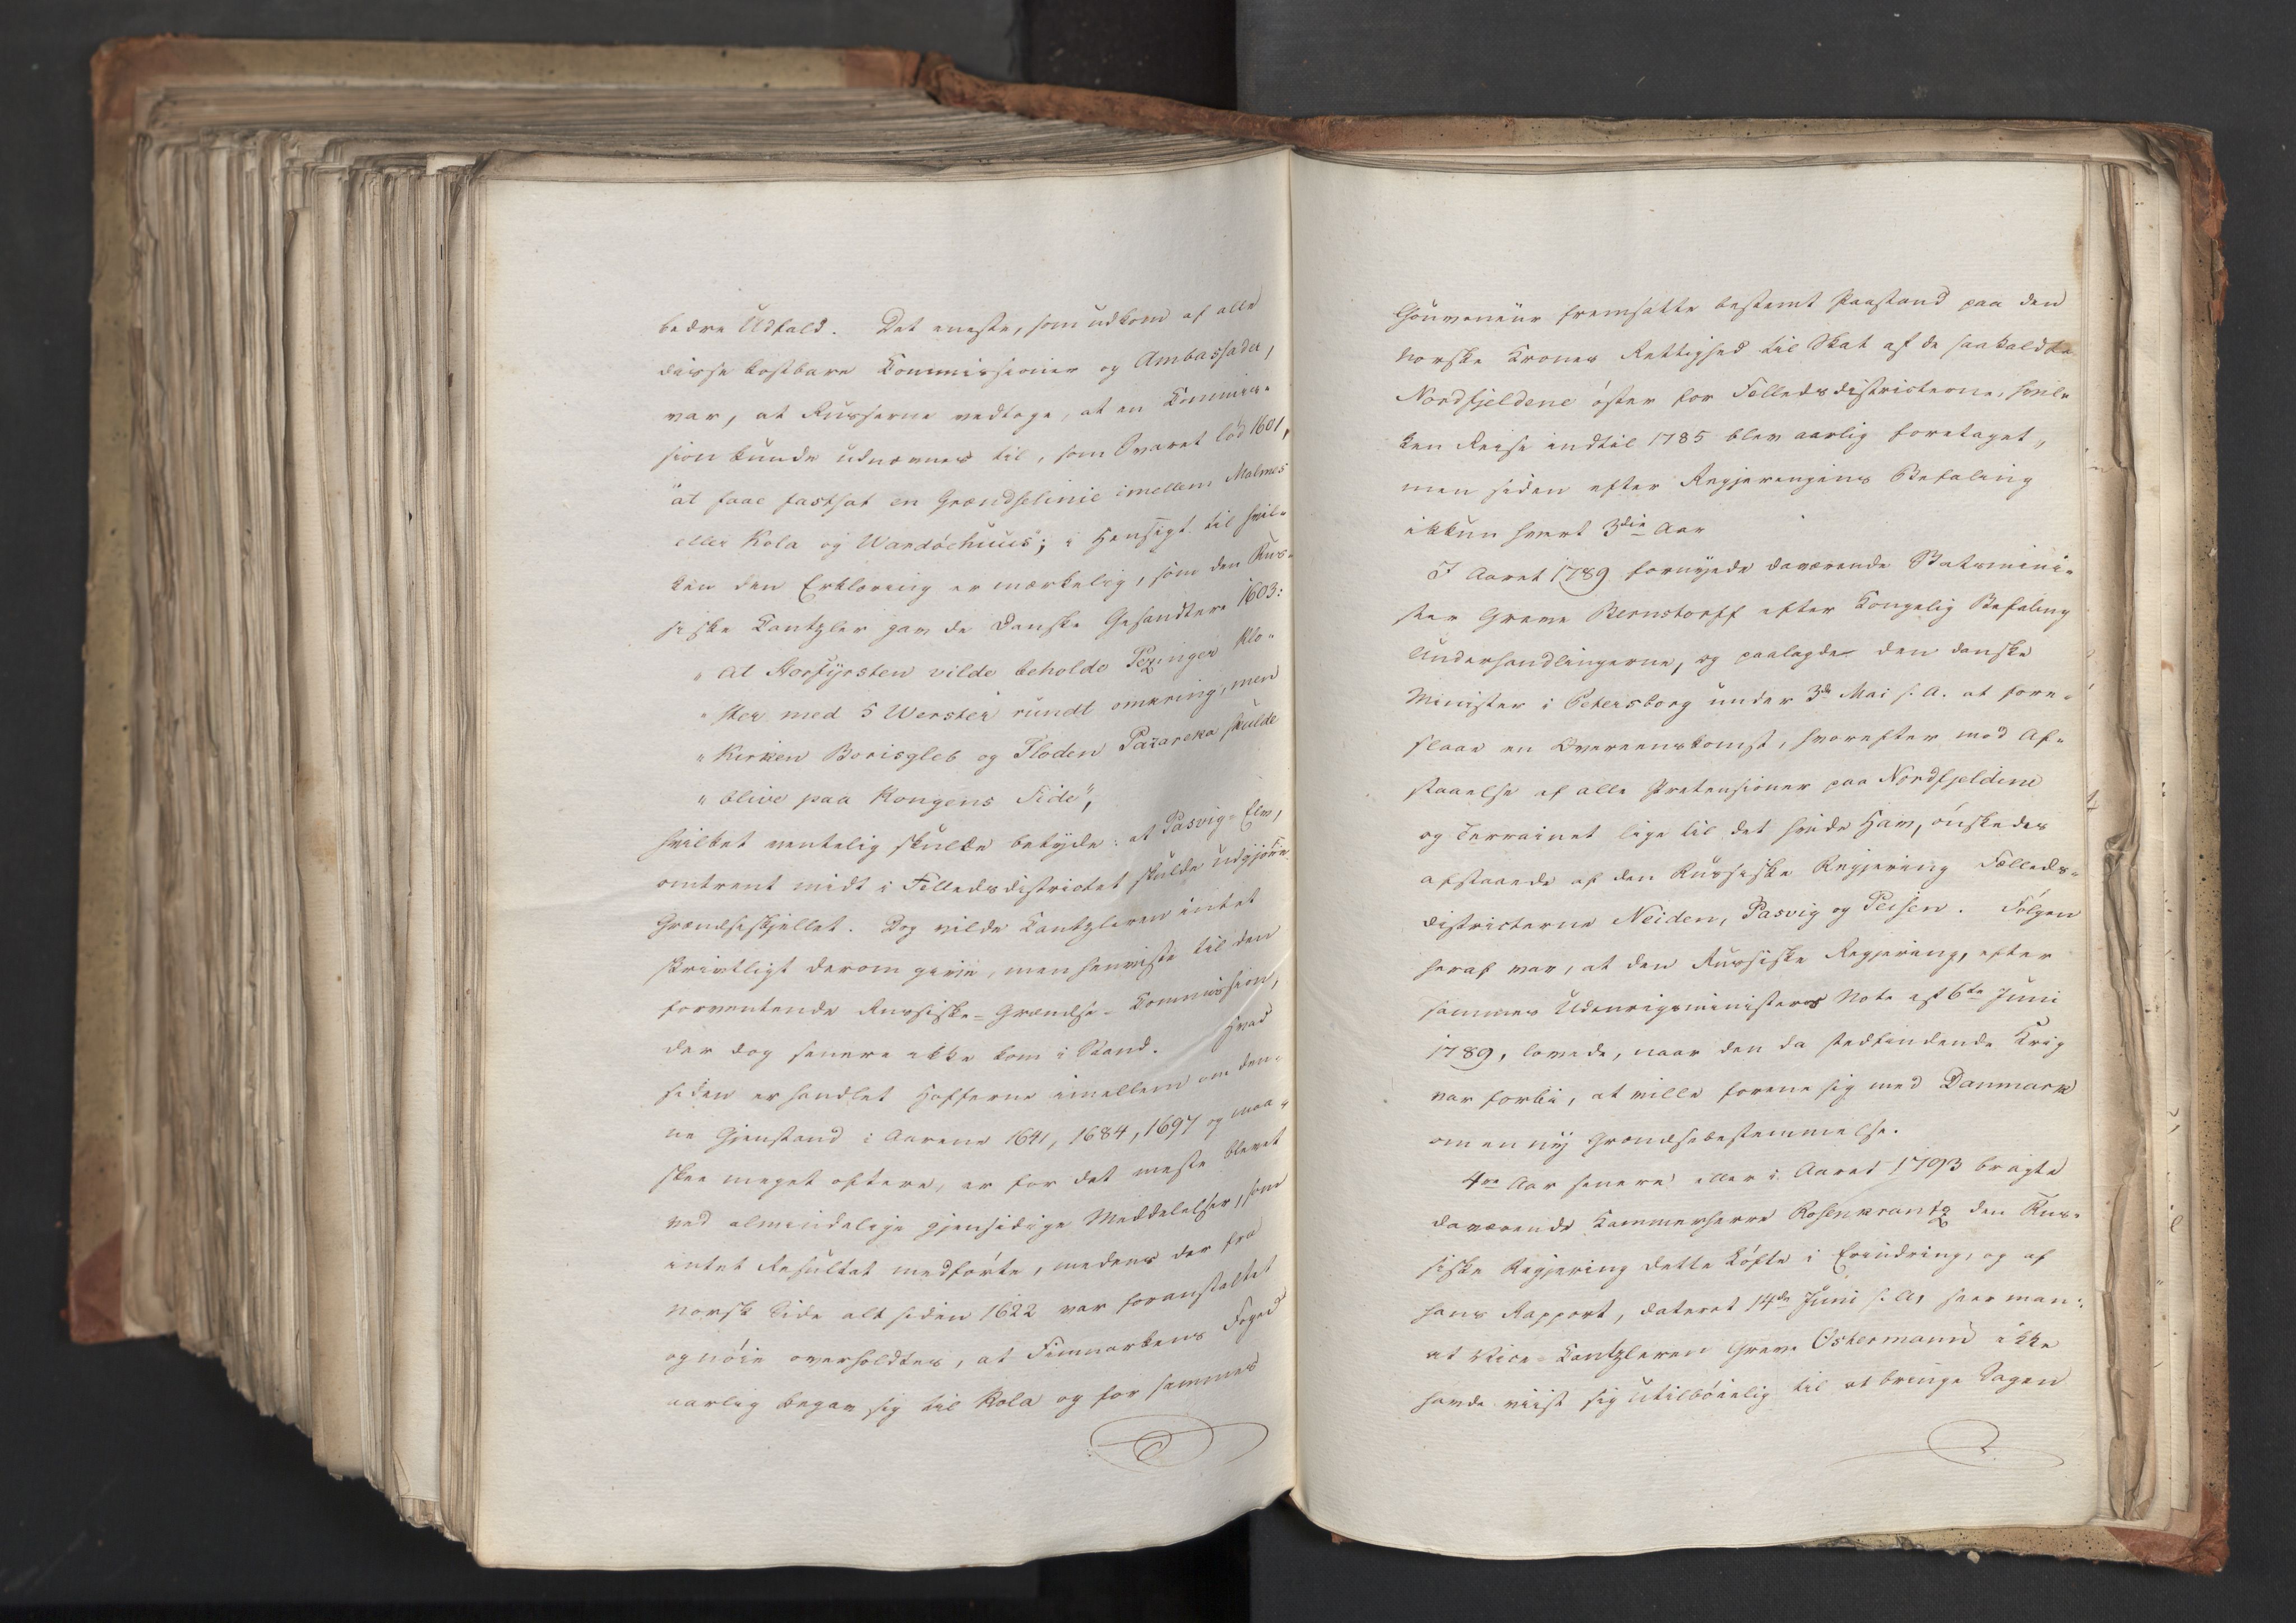 bedre Udfald. Det eneste, som udkom af alle
disse kostbare Commissioner og Ambassader,
var, at Russerne vedtoge, at en Commis-
sion kunde udnævnes til, som Svaret lød 1601,
"at faae fastsat en Grændselinie imellem Malmes
eller Kola og Wardöehuus"; i Hensigt til hvil-
ken den Erklæring er mærkelig, som den Rus-
siske Cantzler gav de Danske Gesandtere 1603:
"At Storfyrsten vilde beholde Pezinger Klo-
"ster med 5 Werster rundt omkring, men
"Kirken Borisgleb og Floden Pazareka skulde
"blive paa Kongens Side",
hvilket ventelig skulde betyde: at Pasvig-Elv,
omtrent midt i Fælledsdistrictet skulde udgjøre
Grændseskjellet. Dog vilde Cantzleren intet
skrivtligt derom give, men henviste til den
forventende Russiske-Grændse-Commission,
der dog senere ikke kom i Stand. Hvad
siden er handlet Hofferne imellem om den-
ne Gjenstand i Aarene 1641, 1684, 1697 og maa-
skee meget oftere, er for det meste blevet
ved almindelige gjensidige Meddelelser, som
intet Resultat medførte, medens der fra
norsk Side alt siden 1622 var foranstaltet
og nöie overholdtes, at Finmarkens Foged
aarlig begav sig til Kola og for sammes
Gouverneur fremsatte bestemt Paastand paa den
norske Krones Rettighed til Skat af de saakaldte
Nordfjeldene öster for Fælledsdistricterne, hvil-
ken Reise indtil 1785 blev aarlig foretaget,
men siden efter Regjeringens Befaling
ikkun hvert 3die Aar
I Aaret 1789 fornyede daværende Statsmini-
ster Greve Bernstorff efter Kongelig Befaling
Underhandlingerne, og paalagde den danske
Minister i Petersborg under 3de Mai s. A. at fore-
slaae en Overeenskomst, hvorefter mod Af-
staaelse af alle Pretensioner paa Nordfjeldene
og Terrainet lige til det hvide Hav, önskedes
afstaaede af den Russiske Regjering Fælleds-
districterne Neiden, Pasvig og Peisen. Fölgen
heraf var, at den Russiske Regjering, efter
sammes Udenrigsministers Note af 6te Juni
1789, lovede, naar den da stedfindende Krig
var forbi, at ville forene sig med Danmark
om en nÿ Grændsebestemmelse.
4re Aar senere eller i Aaret 1793 bragte
daværende Kammerherre Rosenkrantz den Rus-
siske Regjering dette Löfte i Erindring, og af
hans Rapport, dateret 14de Juni s. A. seer man:
at Vice-Cantzleren Greve Ostermann ikke
havde viist sig utilböielig til at bringe Sagen